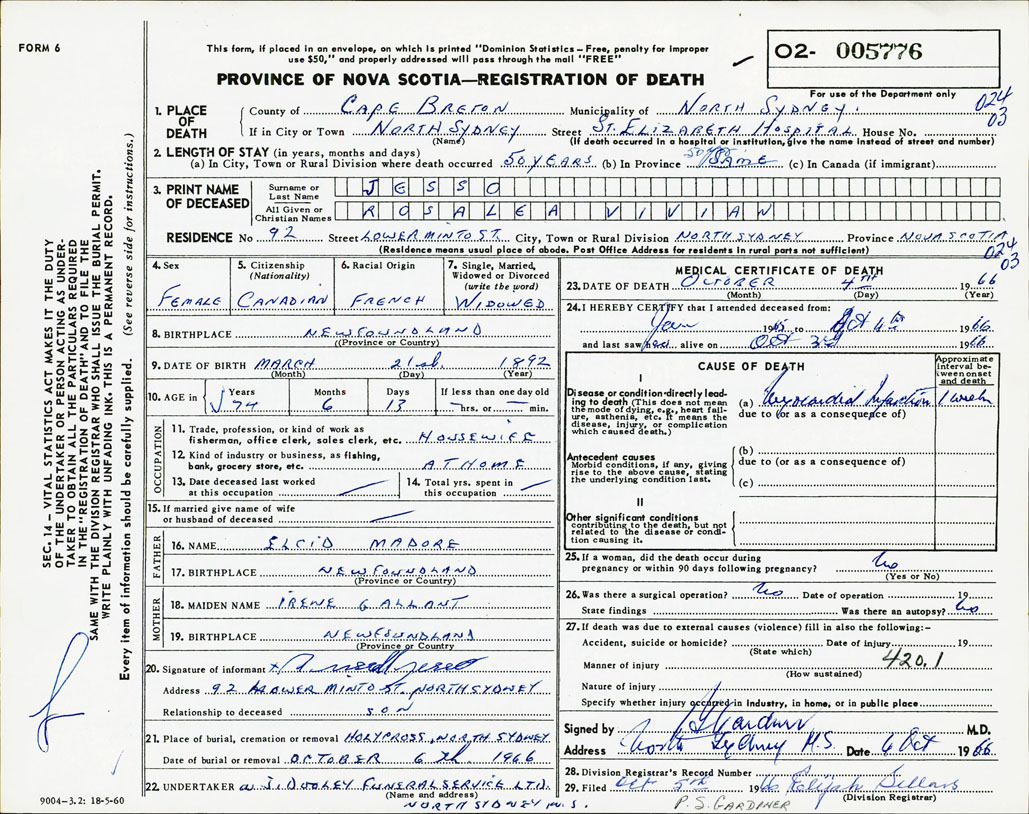 FORM 6
This form, if placed in an envelope, on which is printed "Dominion Statistics – Free, penalty for improper
use $50," and properly addressed will pass through the mail "FREE"
PROVINCE OF NOVA SCOTIA—REGISTRATION OF DEATH
O2- 005776
For use of the Department only
024
03
1. PLACE OF DEATH
County of CAPE BRETON Municipality of NORTH SYDNEY.
If in City or Town NORTH SYDNEY Street ST. ELIZABETH HOSPITAL House No.
(Name) (If death occurred in a hospital or institution, give the name instead of street and number)
2. LENGTH OF STAY (in years, months and days)
(a) In City, Town or Rural Division where death occurred 50 YEARS (b) In Province SAME (c) In Canada (if immigrant)
3. PRINT NAME OF DECEASED
Surname or Last Name JESSO
All Given or Christian Names ROSALEA VIVIAN
RESIDENCE No 92 Street LOWER MINTO ST. City, Town or Rural Division NORTH SYDNEY Province NOVA SCOTIA
(Residence means usual place of abode. Post Office Address for residents in rural parts not sufficient)
024
03
4. Sex
FEMALE
5. Citizenship
(Nationality)
CANADIAN
6. Racial Origin
FRENCH
7. Single, Married,
Widowed or Divorced
(write the word)
WIDOWED
8. BIRTHPLACE NEWFOUNDLAND
(Province or Country)
9. DATE OF BIRTH MARCH 21st. 1892
(Month) (Day) (Year)
10. AGE in
Years Months Days If less than one day old
74 6 13 hrs. or min.
OCCUPATION
11. Trade, profession, or kind of work as
fisherman, office clerk, sales clerk, etc. HOUSEWIFE
12. Kind of industry or business, as fishing,
bank, grocery store, etc. AT HOME
13. Date deceased last worked
at this occupation
14. Total yrs. spent in
this occupation
15. If married give name of wife
or husband of deceased
FATHER
16. NAME ELCID MADORE
17. BIRTHPLACE NEWFOUNDLAND
(Province or Country)
MOTHER
18. MAIDEN NAME IRENE GALLANT
19. BIRTHPLACE NEWFOUNDLAND
(Province or Country)
20. Signature of informant
Address 92 LOWER MINTO ST. NORTH SYDNEY
Relationship to deceased SON
21. Place of burial, cremation or removal HOLY CROSS, NORTH SYDNEY
Date of burial or removal OCTOBER 6th 1966
22. UNDERTAKER W. J. DOOLEY FUNERAL SERVICE LTD.
(Name and address)
NORTH SYDNEY N.S.
MEDICAL CERTIFICATE OF DEATH
23. DATE OF DEATH OCTOBER 4TH 1966
(Month) (Day) (Year)
24. I HEREBY CERTIFY that I attended deceased from:
19 to Oct 4th 1966
and last saw her alive on Oct 3rd 1966
CAUSE OF DEATH
Approximate
interval be-
tween onset
and death
I
Disease or condition directly lead-
ing to death (This does not mean
the mode of dying, e.g., heart fail-
ure, asthenia, etc. It means the
disease, injury, or complication
which caused death.)
(a) Myocardial Infarction 1 week
due to (or as a consequence of)
Antecedent causes
Morbid conditions, if any, giving
rise to the above cause, stating
the underlying condition last.
(b)
due to (or as a consequence of)
(c)
II
Other significant conditions
contributing to the death, but not
related to the disease or condi-
tion causing it.
25. If a woman, did the death occur during
pregnancy or within 90 days following pregnancy? No
(Yes or No)
26. Was there a surgical operation? No Date of operation 19
State findings Was there an autopsy? No
27. If death was due to external causes (violence) fill in also the following:–
Accident, suicide or homicide? Date of injury 19
(State which)
420.1
Manner of injury
(How sustained)
Nature of injury
Specify whether injury occurred in industry, in home, or in public place
Signed by P S Gardner M.D.
Address North Sydney N.S. Date 6 Oct 1966
28. Division Registrar's Record Number
29. Filed Oct 5th 1966 Elijah Sellars
(Division Registrar)
P.S. GARDINER
SEC. 14 – VITAL STATISTICS ACT MAKES IT THE DUTY
OF THE UNDERTAKER OR PERSON ACTING AS UNDER-
TAKER TO OBTAIN ALL THE PARTICULARS REQUIRED
IN THE "REGISTRATION OF DEATH" AND TO FILE THE
SAME WITH THE DIVISION REGISTRAR WHO SHALL ISSUE THE BURIAL PERMIT.
WRITE PLAINLY WITH UNFADING INK. THIS IS A PERMANENT RECORD.
Every item of information should be carefully supplied. (See reverse side for instructions.)
9004-3.2: 18-5-60